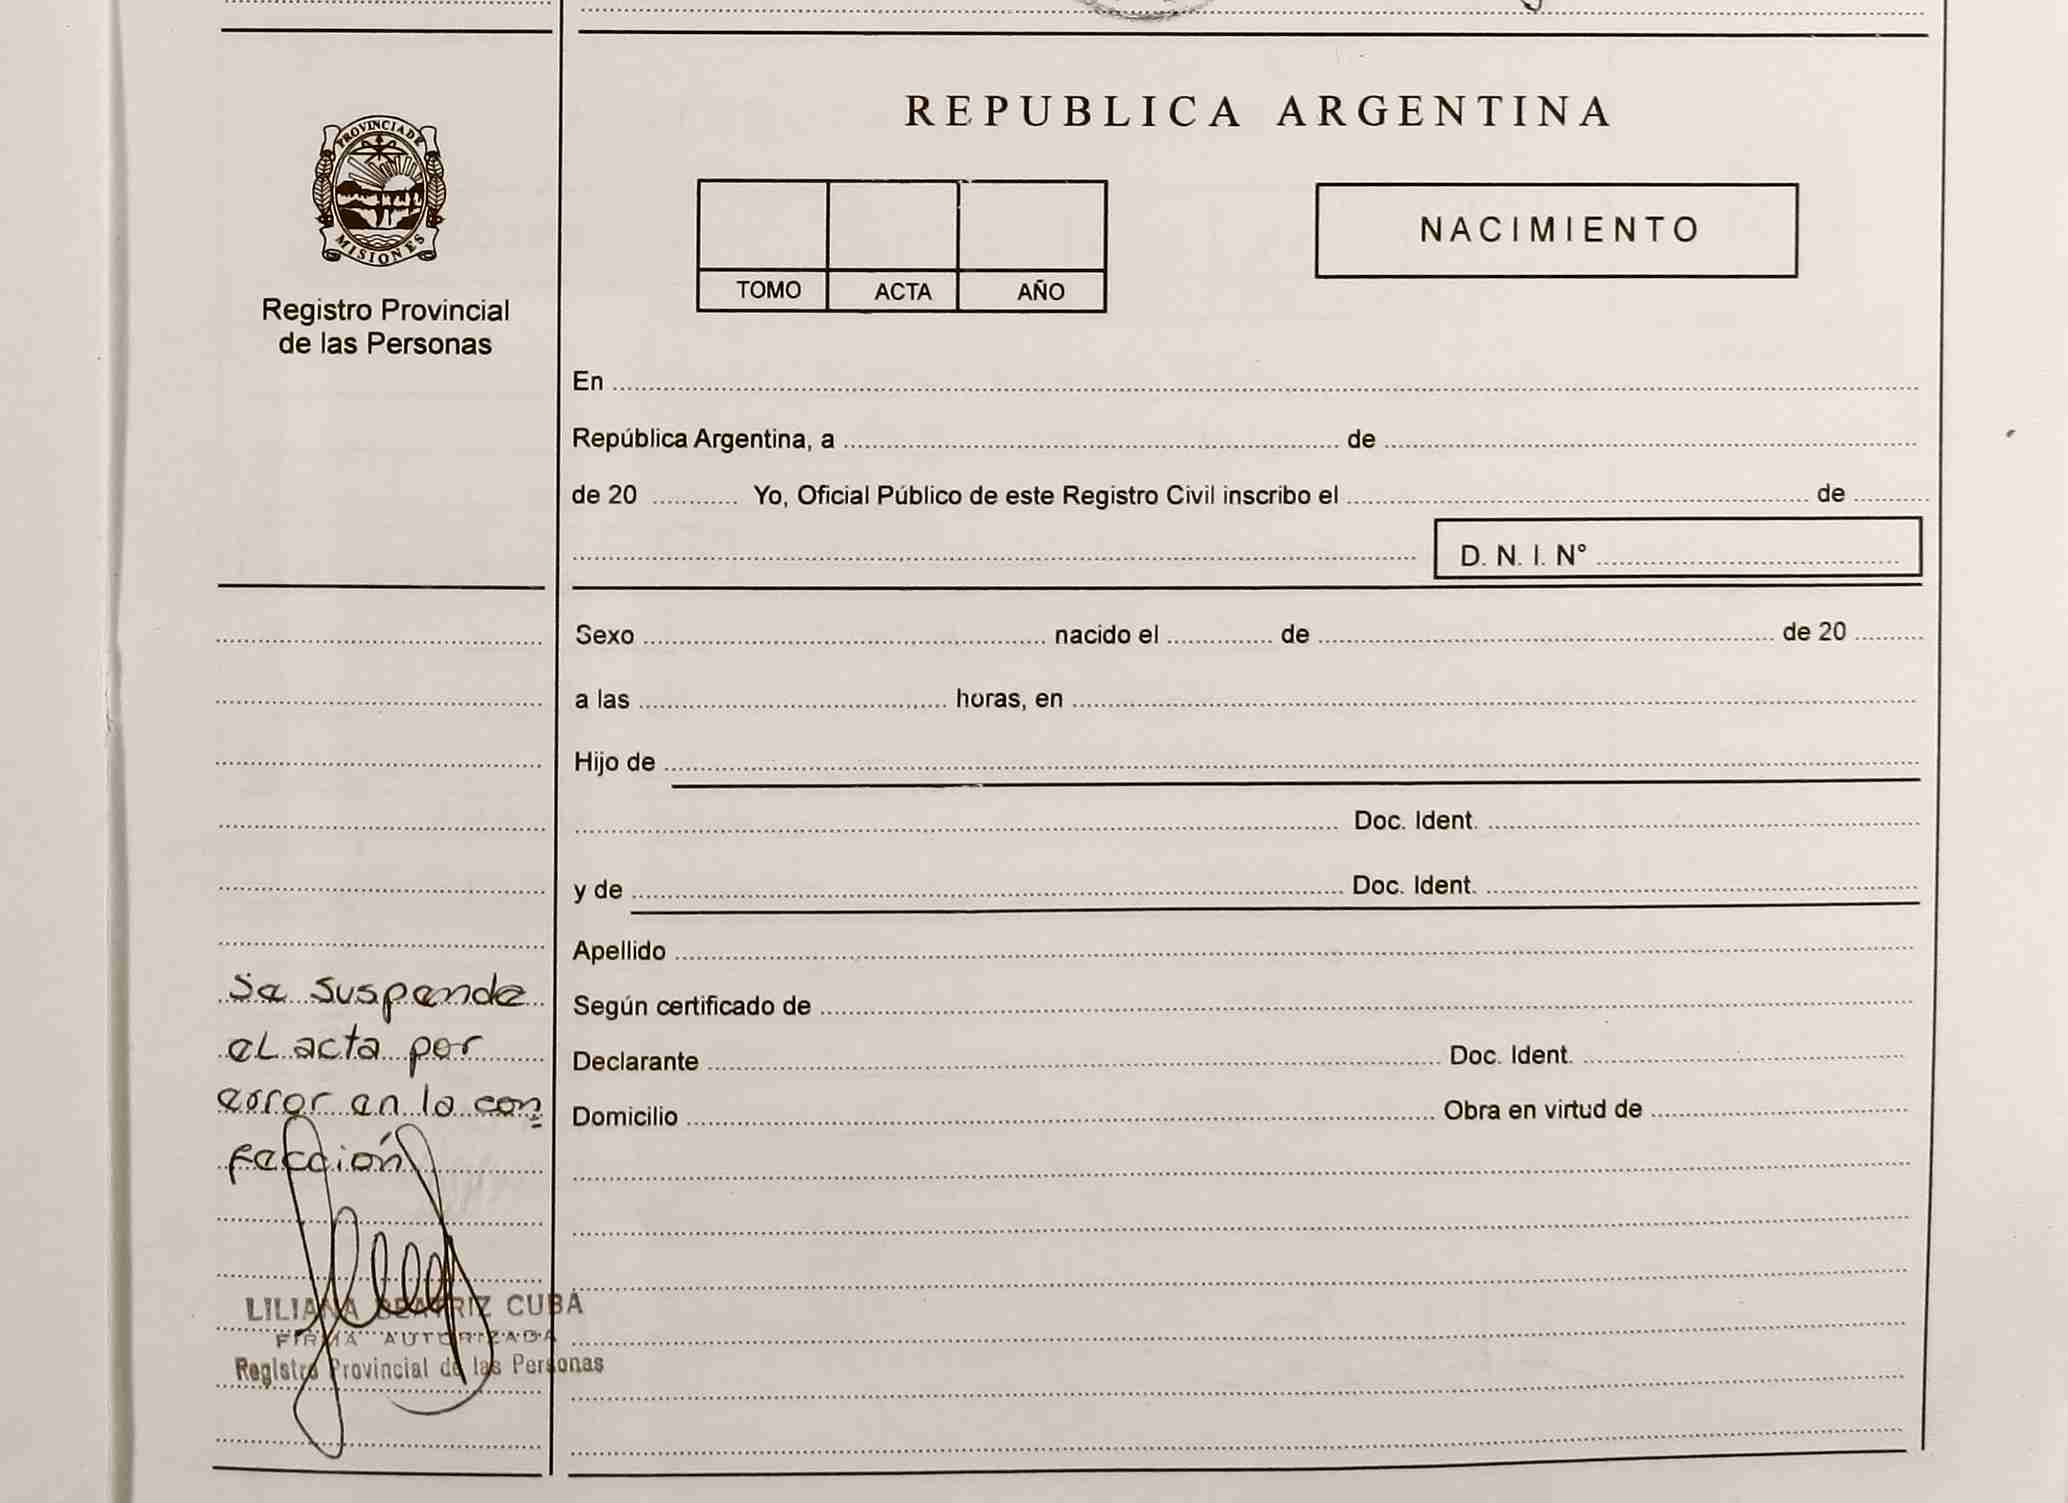 PROVINCIA DE
MISIONES
Registro Provincial
de las Personas
REPUBLICA ARGENTINA
TOMO ACTA AÑO
NACIMIENTO
En
República Argentina, a de
de 20 Yo, Oficial Público de este Registro Civil inscribo el de
D. N. I. N°
Sexo nacido el de de 20
a las horas, en
Hijo de
Doc. Ident.
y de Doc. Ident.
Apellido
Según certificado de
Declarante Doc. Ident.
Domicilio Obra en virtud de
Se suspende
el acta por
error en la con
fección
LILIANA BEATRIZ CUBA
FIRMA AUTORIZADA
Registro Provincial de las Personas